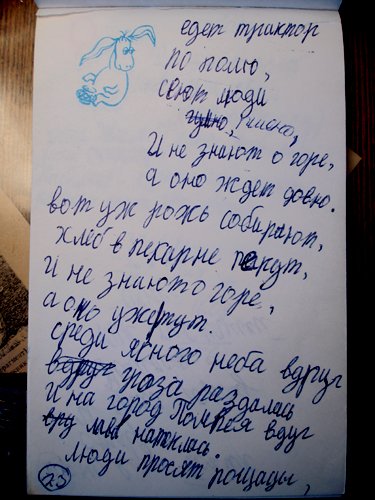 едет трактор
по полю,
сеют люди
гумно,
И не знают о горе,
а оно ждет давно.
вот уж рожь собирают,
хлеб в пекарне пекут,
И не знают о горе,
а онь уж тут.
среди ясного неба вдруг
вдруг гроза раздалась
и на город Помпея вдуг
вру лава натеклась.
люди просят пощады,
23